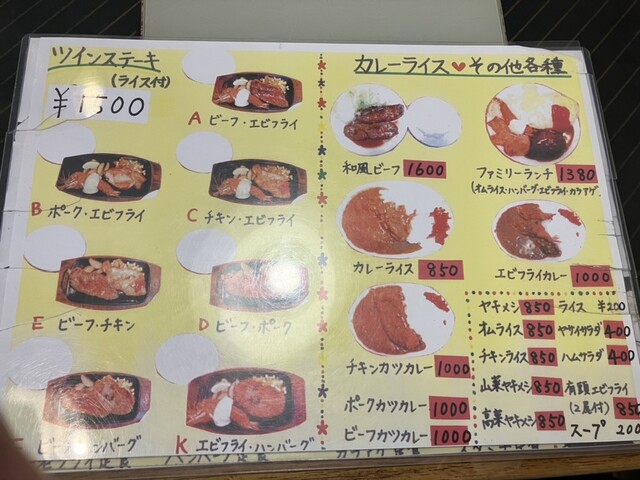 ツインステーキ
(ライス付)
¥1500
A ビーフ・エビフライ
B ポーク・エビフライ
C チキン・エビフライ
E ビーフ・チキン
D ビーフ・ポーク
ハンバーグ
K エビフライ・ハンバーグ
カレーライス♥その他各種
和風ビーフ 1600
ファミリーランチ 1380
(オムライス・ハンバーグ・エビフライ・カラアゲ
カレーライス 850
エビフライカレー 1000
チキンカツカレー 1000
ポークカツカレー 1000
ビーフカツカレー 1000
ヤキメシ 850
オムライス 850
チキンライス 850
山菜ヤキメシ 850
高菜ヤキメシ 850
ライス ¥200
ヤサイサラダ 400
ハムサラダ 400
有頭エビフライ
(2尾付) 850
スープ 200